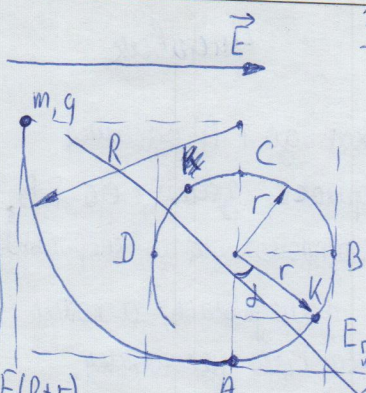 E
m, q
R
C
r
D
B
r
K
α
E
E(R+r)
A